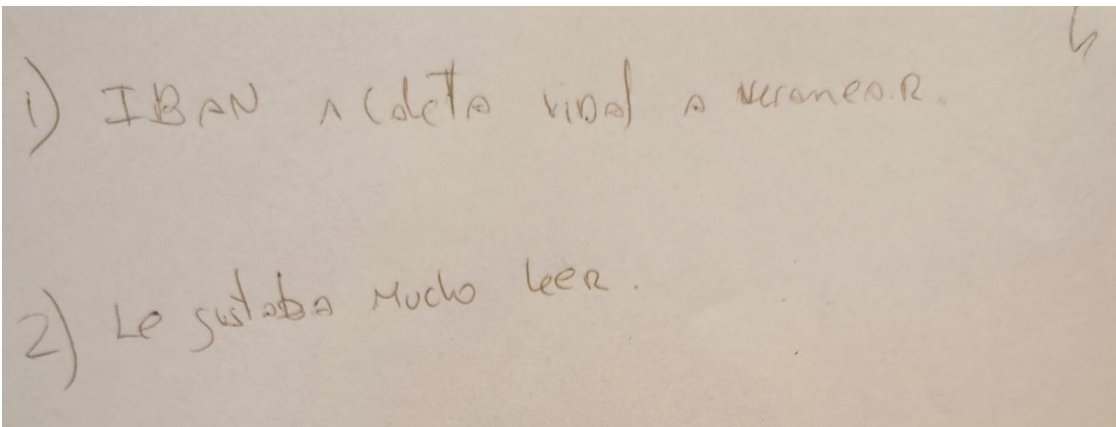 1) IBAN A Caleta Vidal A veranear.
2) Le gustaba Mucho leer.